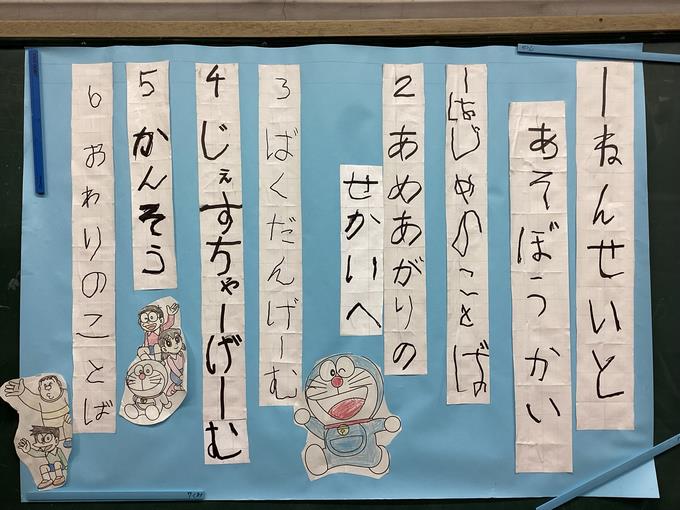 1ねんせいと
あそぼうかい
1はじめのことば
2あめあがりの
せかいへ
3ばくだんげーむ
4じぇすちゃーげーむ
5かんそう
6おわりのことば